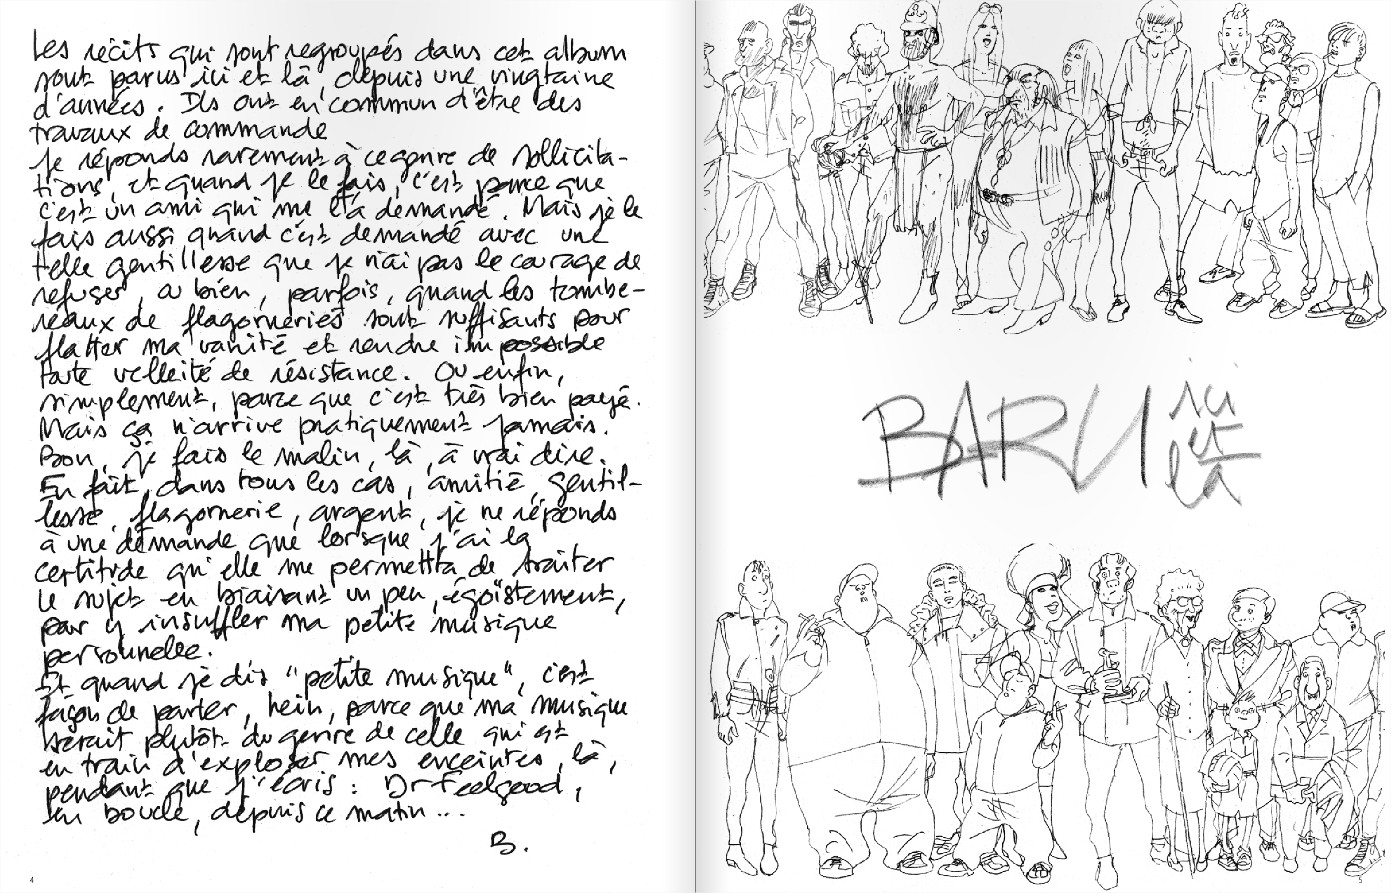 Les récits qui sont regroupés dans cet album
sont parus ici et là, depuis une vingtaine
d'années. Ils ont en commun d'être des
travaux de commande
Je réponds rarement à ce genre de sollicita-
tions, et quand je le fais, c'est parce que
c'est un ami qui me l'a demandé. Mais je le
fais aussi quand c'est demandé avec une
telle gentillesse que je n'ai pas le courage de
refuser, ou bien, parfois, quand les tombe-
reaux de flagorneries sont suffisants pour
flatter ma vanité et rendre impossible
toute velleité de résistance. Ou enfin,
simplement, parce que c'est très bien payé.
Mais ça n'arrive pratiquement jamais.
Bon, je fais le malin, là, à vrai dire.
En fait, dans tous les cas, amitié, gentil-
lesse, flagornerie, argent, je ne réponds
à une demande que lorsque j'ai la
certitude qu'elle me permettra de traiter
le sujet en biaisant un peu, égoïstement,
par y insuffler ma petite musique
personnelle.
Et quand je dis "petite musique", c'est
façon de parler, hein, parce que ma musique
serait plutôt du genre de celle qui est
en train d'exploser mes enceintes, là,
pendant que j'écris : Dr Feelgood,
en boucle, depuis ce matin...
B.
4
BARU ici
et
là
5